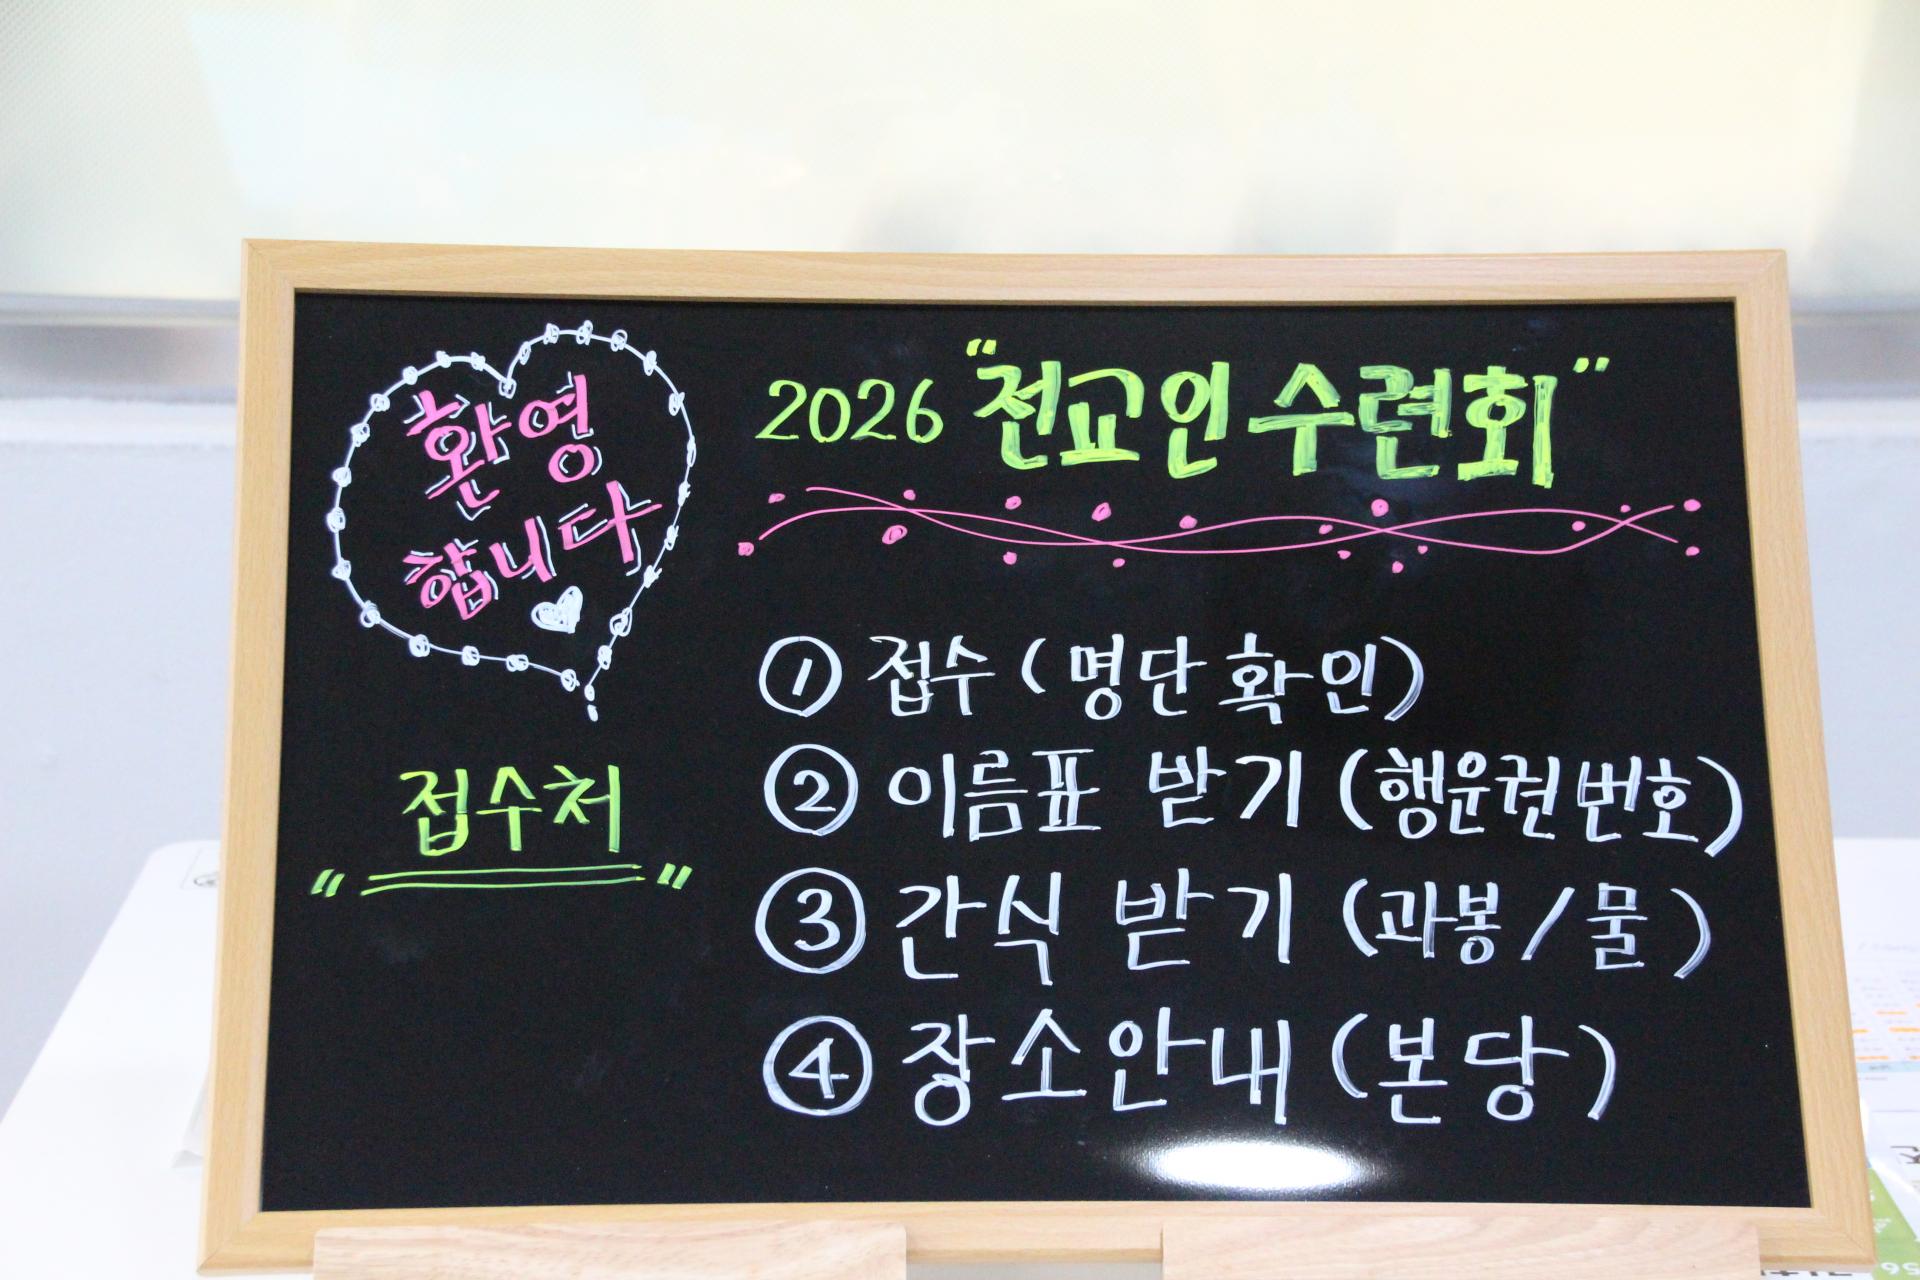 환영
합니다
접수처
2026 "전교인 수련회"
① 접수 (명단 확인)
② 이름표 받기 (행운권 번호)
③ 간식 받기 (과봉/물)
④ 장소안내 (본당)